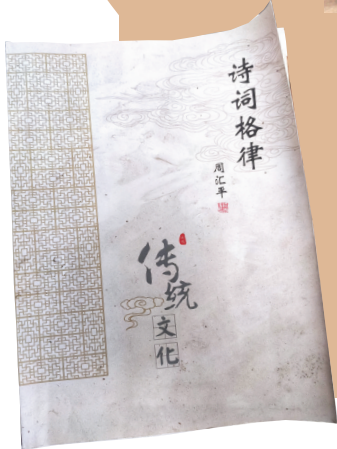 诗词格律
周汇平
传统
文化